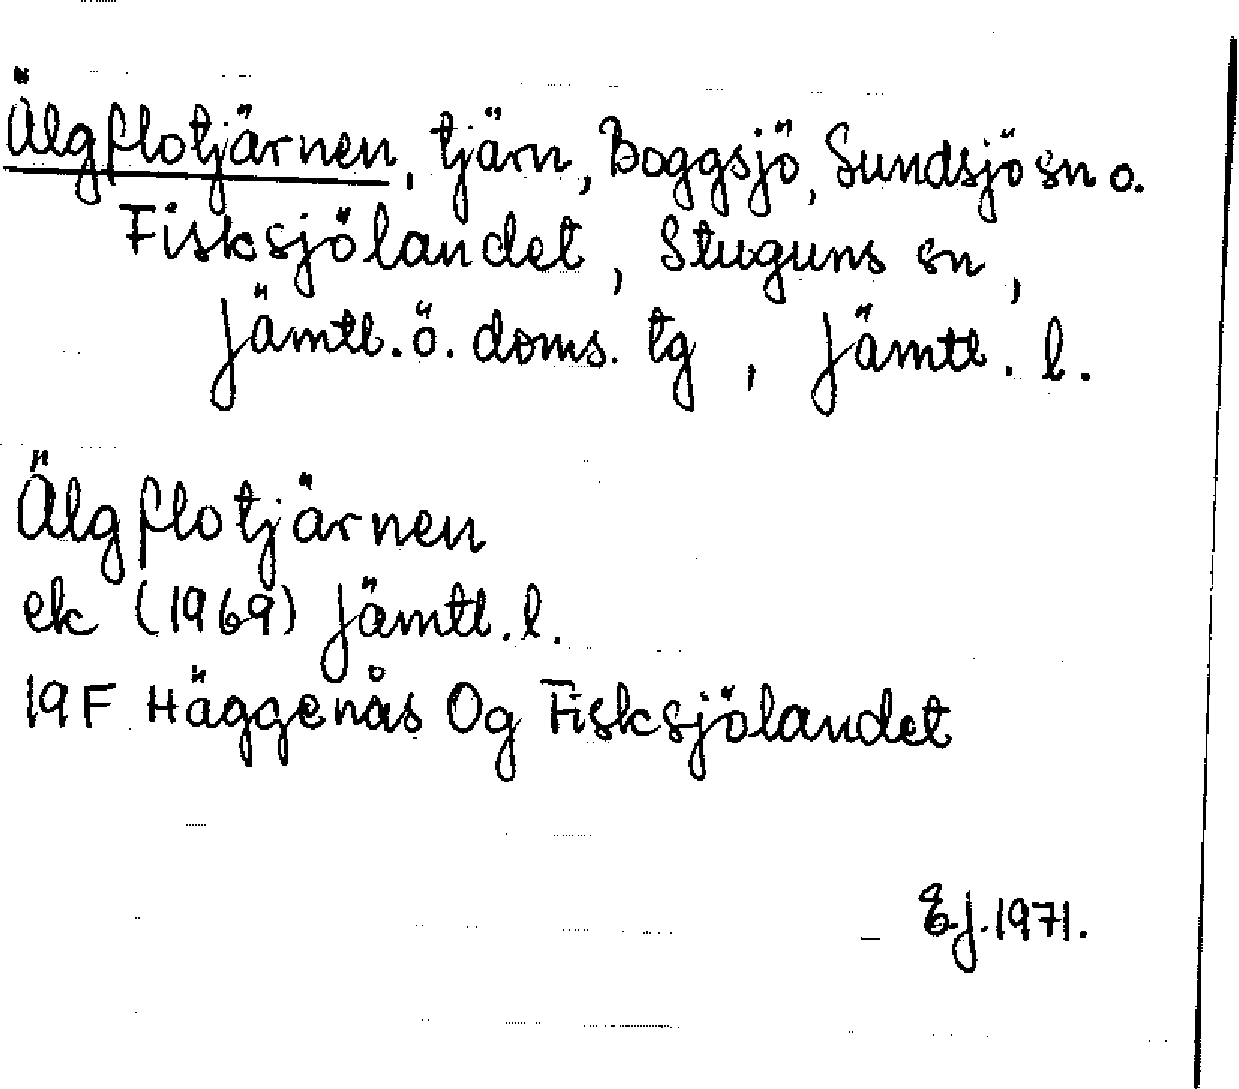 Älgflotjärnen, tjärn, Boggsjö, Sundsjö sn o.
Fisksjölandet, Stuguns sn,
Jämtl. ö. doms. tg, Jämtl. l.
Älgflotjärnen
ek (1969) Jämtl. l.
19F Häggenås Og Fisksjölandet
Ej. 1971.